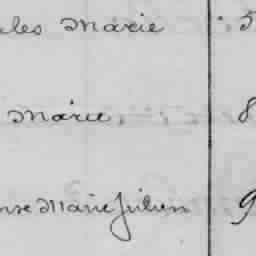 ules Marie 5
Marie 8
nse Marie Julien 9